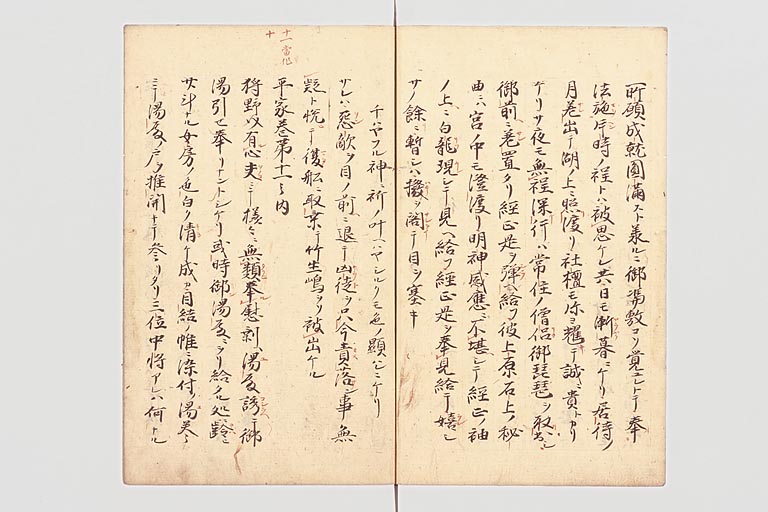 所願成就圓滿スト義ルニ御誓教コソ覚エレトテ奉
法施片時ノ程トハ被思ケレ共日モ漸暮ニケリ居待ノ
月差出テ湖ノ上ニ照渡リ社檀モ弥ヨ耀テ誠ニ貴トカリ
ケリサ夜モ無程深行ハ常住ノ僧侶御琵琶ヲ取出シ
御前ニ差置タリ経正是ヲ弾給フ彼上原石上ノ秘
曲ハ宮ノ中モ澄渡リ明神感應ニ不堪シテ経正ノ袖
ノ上ニ白龍現シテ見ヘ給フ経正是ヲ奉見給テ嬉シ
サノ餘ニ暫シハ撥ヲ閣テ目ヲ塞キ
千ハヤフル神ニ祈ノ叶ヘハヤシルクモ色ノ顕ハレニケリ
サレハ怨敵ヲ目ノ前ニ退テ凶徒ヲ只今責落シ事無
疑ト悦テ復舩ニ取乗テ竹生嶋ヲソ被出ケル
平家巻第十一之内
狩野以有心夫ニテ様々ニ無類奉慰剰湯殿
湯引セ奉リナントシケリ或時御湯殿
ナル女房ノ色白ク清ケ成カ目結ノ帷ニ染付湯巻
シテ湯殿ノ戸ヲ推開ケテ参リタリ三位中将アレハ何ナル
十一當化
十